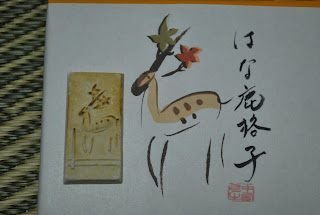 はな鹿格子